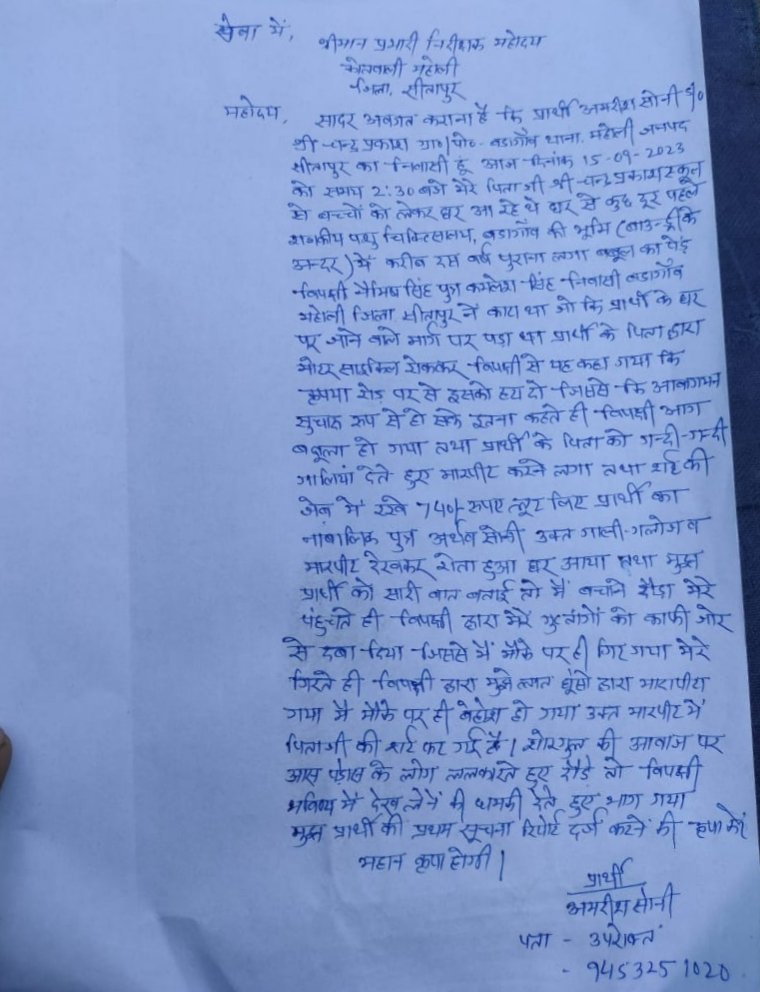 सेवा में,
श्रीमान प्रभारी निरीक्षक महोदय
कोतवाली महोली
जिला, सीतापुर
महोदय, सादर अवगत कराना है कि प्रार्थी अमरीश सोनी S/o
श्री चन्द्र प्रकाश ग्रा०/पो०- बडागाँव थाना. महोली जनपद
सीतापुर का निवासी हूं आज दिनांक 15-09-2023
को समय 2:30 बजे मेरे पिता जी श्री चन्द्र प्रकाश स्कूल
से बच्चों को लेकर घर आ रहे थे घर से कुछ दूर पहले
राजकीय पशु चिकित्सालय, बडागाँव की भूमि (बाउन्ड्री के
अन्दर) में करीब दस वर्ष पुराना लगा बबूल का पेड़
विपक्षी नैमिष सिंह पुत्र कमलेश सिंह निवासी बडागाँव
महोली जिला सीतापुर ने काटा था जो कि प्रार्थी के घर
पर जाने वाले मार्ग पर पडा था प्रार्थी के पिता द्वारा
मोटर साइकिल रोककर विपक्षी से यह कहा गया कि
कृपया रोड पर से इसको हटा दो जिससे कि आवागमन
सुचारू रूप से हो सके इतना कहते ही विपक्षी आग
बबूला हो गया तथा प्रार्थी के पिता को गन्दी-गन्दी
गालियां देते हुए मारपीट करने लगा तथा शर्ट की
जेब में रखे 740/- रुपए लूट लिए प्रार्थी का
नाबालिक पुत्र अर्थव सोनी उक्त गाली-गलौज व
मारपीट देखकर रोता हुआ घर आया तथा मुझ
प्रार्थी को सारी बात बताई तो मैं बचाने दौडा मेरे
पंहुचते ही विपक्षी द्वारा मेरे गुप्तांगों को काफी जोर
से दबा दिया जिससे मैं मौके पर ही गिर गया मेरे
गिरते ही विपक्षी द्वारा मुझे लात घूंसो द्वारा मारापीटा
गया मैं मौके पर ही बेहोश हो गया उक्त मारपीट में
पिताजी की शर्ट फट गई है। शोरगुल की आवाज पर
आस पडोस के लोग ललकारते हुए दौडे तो विपक्षी
भविष्य में देख लेने की धमकी देते हुए भाग गया
मुझ प्रार्थी की प्रथम सूचना रिपोर्ट दर्ज करने की कृपा करें
महान कृपा होगी।
प्रार्थी
अमरीश सोनी
पता - उपरोक्त
- 9453251020